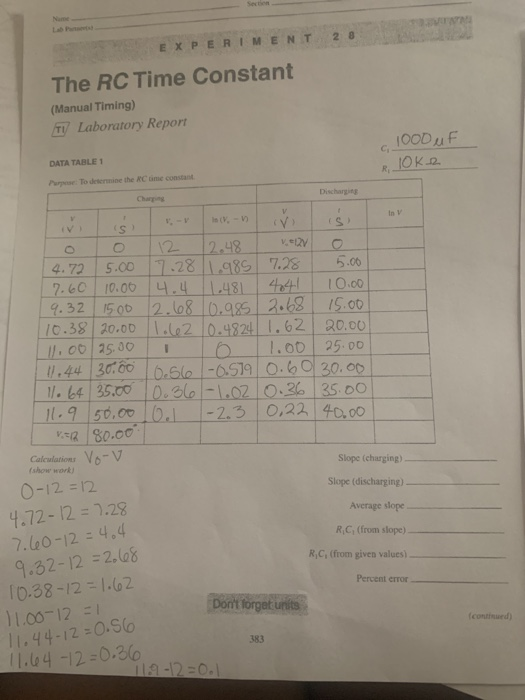 Section
Name
EXPERIMENT 28
The RC Time Constant
(Manual Timing)
TI Laboratory Report
C₁ 1000 uF
DATA TABLE 1
R₁ 10KΩ
Purpose: To determine the RC time constant
Charging Discharging
V (V) t (S) V₀-V ln(V₀-V) V (V) t (S) ln V
0 0 12 2.48 V₀=12V 0
4.72 5.00 7.28 1.985 7.28 5.00
7.60 10.00 4.4 1.481 4.41 10.00
9.32 15.00 2.68 0.985 2.68 15.00
10.38 20.00 1.62 0.4824 1.62 20.00
11.00 25.00 1 0 1.00 25.00
11.44 30.00 0.56 -0.579 0.60 30.00
11.64 35.00 0.36 -1.02 0.36 35.00
11.9 50.00 0.1 -2.3 0.22 40.00
V₀=12 80.00
Calculations V₀-V
(show work)
Slope (charging)
0-12=12
Slope (discharging)
4.72-12=7.28
Average slope
7.60-12=4.4
R₁C₁ (from slope)
9.32-12=2.68
R₁C₁ (from given values)
10.38-12=1.62
Percent error
11.00-12=1
Don't forget units
(continued)
11.44-12=0.56
383
11.64-12=0.36
11.9-12=0.1